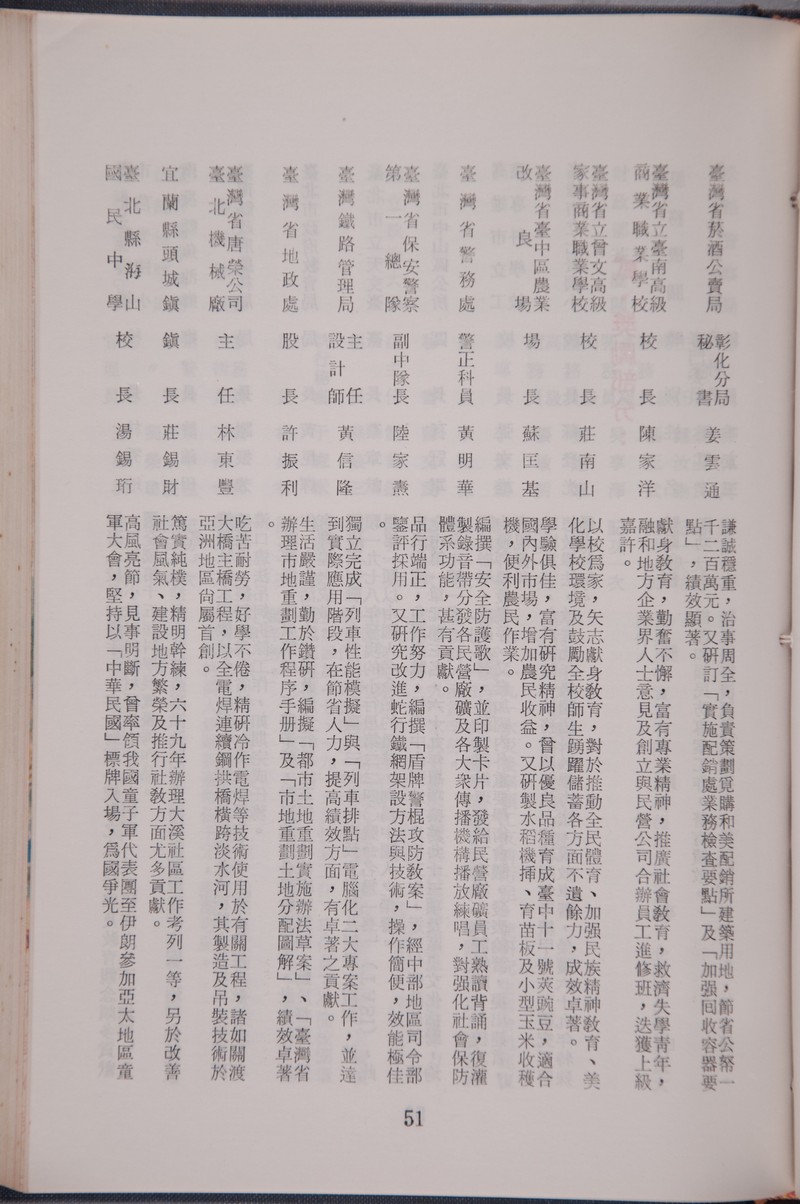 臺灣省菸酒公賣局 彰化分局秘書 姜雲通 謙誠穩重，治事周全，負責策劃覓購和美配銷所建築用地，節省公帑一
千二百萬元。又研訂「實施配銷處業務檢查要點」及「加强回收容器要
點」，績效顯著。
臺灣省立臺南高級商業職業學校 校長 陳家洋 獻身敎育，勤奮不懈，富有專業精神，推廣社會敎育，救濟失學靑年，
融和地方企業界人士意見及創立與民營公司合辦員工進修班，迭獲上級
嘉許。
臺灣省立曾文高級家事商業職業學校 校長 莊南山 以校爲家，矢志獻身敎育，對於推動全民體育、加强民族精神敎育、美
化學校環境及鼓勵全校師生踴躍儲蓄各方面不遺餘力，成效卓著。
臺灣省臺中區農業改良場 場長 蘇匡基 學驗俱佳，富有研究精神，曾以優良品種育成臺中十一號莢豌豆，適合
國內外市場，增加農民收益。又研製水稻機揷、育苗板及小型玉米收穫
機，便利農民作業。
臺灣省警務處 警正科員 黃明華 編撰「安全防護歌」，並印製卡片，發給民營廠礦員工熟讀背誦，復灌
製錄音帶分發各民營廠礦及各大衆傳播機構播放練唱，對强化社會保防
體系功能，甚有貢獻。
臺灣省保安警察第一總隊 副中隊長 陸家燾 品行端正，工作努力，編撰「盾牌警棍攻防敎案」，經中部地區司令部
鑒評採用。又研究改進蛇行鐵網架設方法與技術，操作簡便，效能極佳
。
臺灣鐵路管理局 主任設計師 黃信隆 獨立完成「列車性能模擬」與「列車排點」電腦化二大專案工作，並達
到實際應用階段，在節省人力，提高績效方面，有卓著之貢獻。
臺灣省地政處 股長 許振利 生活嚴謹，勤於鑽研，編擬「都市土地重劃實施辦法草案」、「臺灣省
辦理市地重劃工作程序手册」及「市地重劃土地分配圖解」，績效卓著
。
臺灣省唐榮公司臺北機械廠 主任 林東豐 吃苦耐勞，好學不倦，精研冷作電焊等技術使用於有關工程，諸如關渡
大橋主橋工程，以全電焊連續鋼拱橋橫跨淡水河，其製造及吊裝技術於
亞洲地區尙屬首創。
宜蘭縣頭城鎭 鎭長 莊錫財 篤實純樸，精明幹練，六十九年辦理大溪社區工作考列一等，另於改善
社會風氣、建設地方繁榮及推行社敎方面尤多貢獻。
臺北縣海山國民中學 校長 湯錫珩 高風亮節，見事明斷，曾率領我國童子軍代表團至伊朗參加亞太地區童
軍大會，堅持以「中華民國」標牌入場，爲國爭光。
51